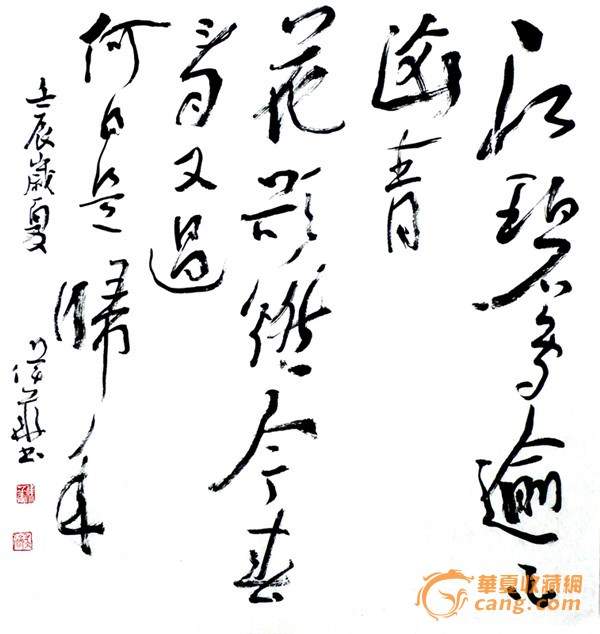 江碧鳥逾白
青
花欲燃今春
看又過
何日是歸年
壬辰歲夏
華書
華夏收藏網
cang.com